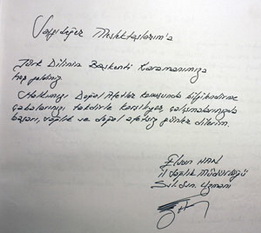 Çok değer Meslektaşlarım'a
Türk Dilinin Başkenti Karamanımıza
hoş geldiniz
Halkımızı Doğal Afetler konusunda bilgilendirme
çabalarınızı takdirle karşılıyor çalışmalarınızda
başarı, sağlık ve doğal afetsiz günler dilerim.
HAN
İl Sağlık Müdürlüğü
Uzmanı